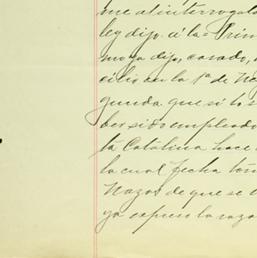 me al interrogato
ley dijo: á la Prim
mo ya dijo, casado,
cilio en la 1ª de
gunda que si
ber sido empleado
ta Catalina hace
la cual fecha
Mazos de que se
ya expuso la razo